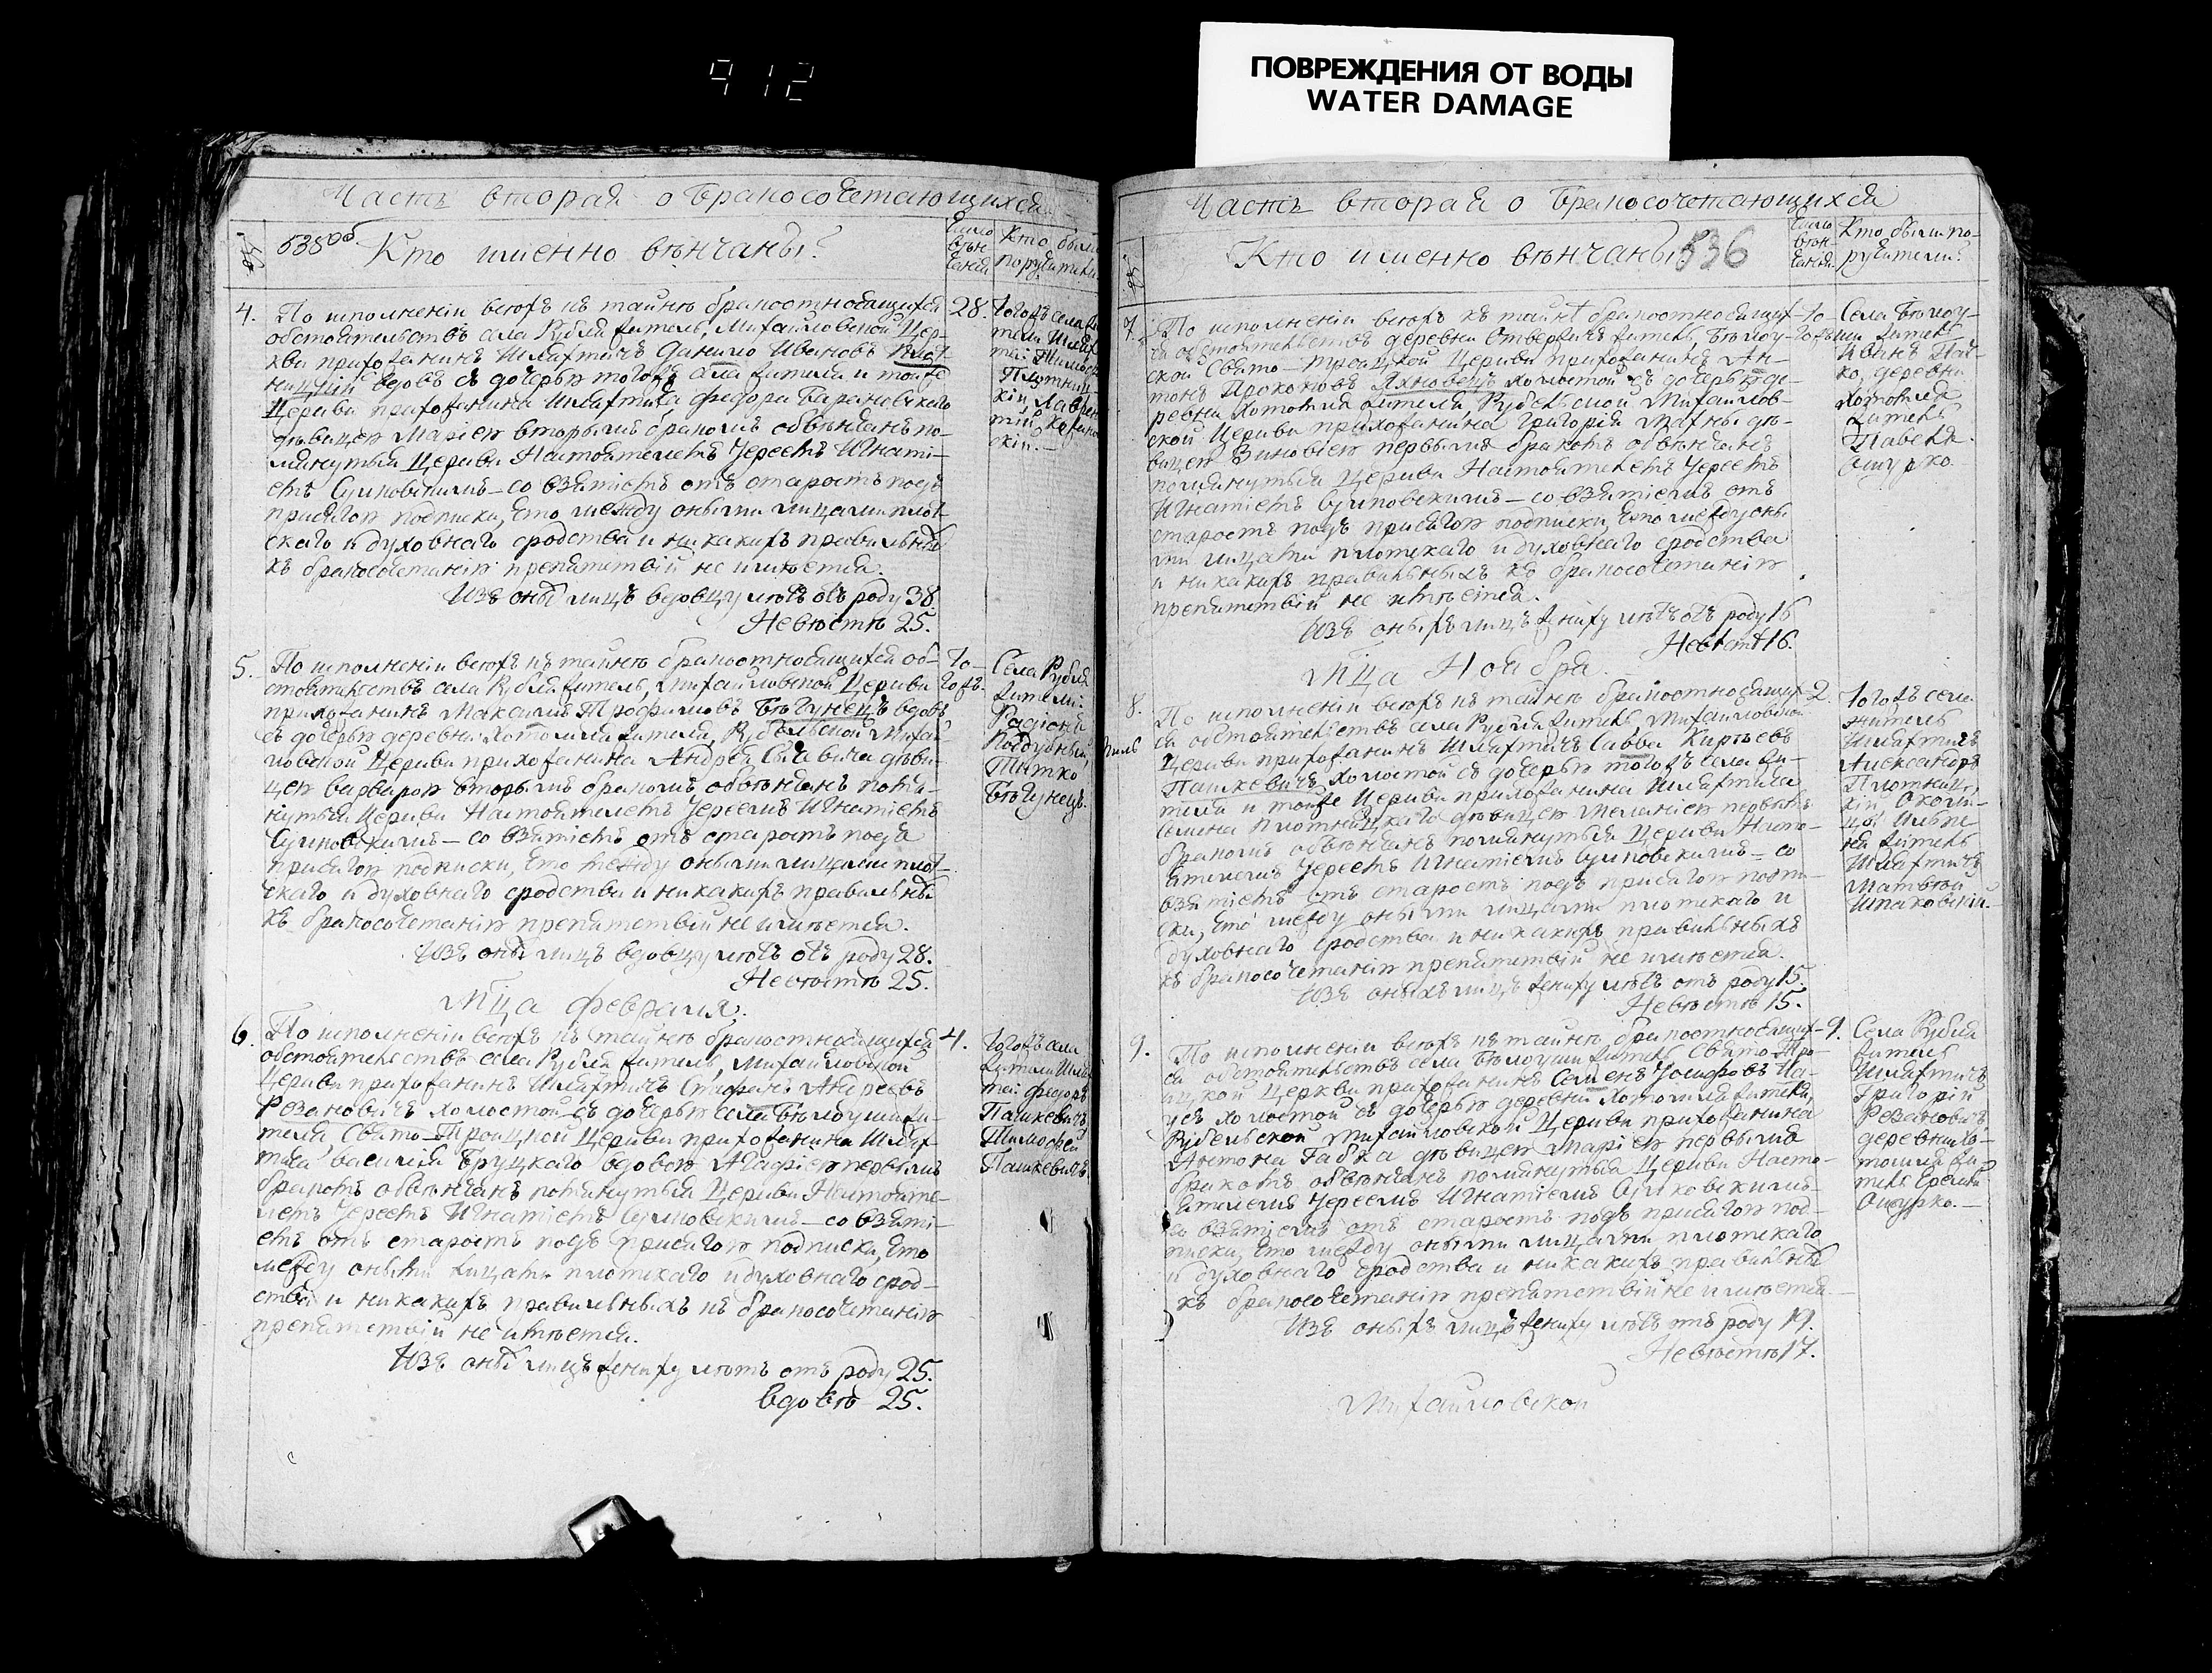 912
ПОВРЕЖДЕНИЯ ОТ ВОДЫ
WATER DAMAGE
Часть вторая о бракосочетающихся
535об.
Кто именно вѣнчаны?
Число вѣн-чанія
Кто были поручители
4.
По исполненіи всѣхъ къ тайнѣ бракоотносящихся
обстоятельствъ села Рубля житель, Михайловской Цер-
кви прихожанинъ Шляхтичъ Данило Ивановъ Плот-
ницкій вдовъ съ дочерью тогожъ села жителя и тойже
Церкви прихожанина Шляхтича Федора Барановскаго
дѣвицею Маріею вторымъ бракомъ обвѣнчанъ по-
мянутыя Церкви Настоятелемъ Іереемъ Игнаті-
емъ Сулковскимъ – со взятіемъ отъ старостъ подъ
присягою подписки, что между оными лицами плот-
скаго и духовнаго сродства и никакихъ правильны
къ бракосочетанію препятствій не имѣется.
Изъ оны лицъ вдовцу лѣтъ отъ роду 38.
Невѣстѣ 25.
28.
Тогожъ села
5.
По исполненіи всѣхъ къ тайнѣ бракоотносящихся об-
стоятельствъ села Рубля житель, Михайловской Церкви
прихожанинъ Максимъ Трофимовъ Бѣгунецъ вдовъ
съ дочерью деревни Хотомля жителя, Рубельской Михай-
ловской Церкви прихожанина Андрея дѣви-
цею Варварою вторымъ бракомъ обвѣнчанъ помя-
нутыя Церкви Настоятелемъ Іереемъ Игнатіемъ
Сулковскимъ – со взятіемъ отъ старостъ подъ
присягою подписки, что между оными лицами плот-
скаго и духовнаго сродства и никакихъ правильны
къ бракосочетанію препятствій не имѣется.
Изъ оны лицъ вдовцу лѣтъ отъ роду 28.
Невѣстѣ 25.
То-
гожъ.
Села Рубля
жители:
Радіонъ
Поддубный,
Титко
Бѣгунецъ.
Мца Февраля.
6.
По исполненіи всѣхъ къ тайнѣ бракоотносящихся
обстоятельствъ села Рубля житель, Михайловской
Церкви прихожанинъ Шляхтичъ Стефанъ Андреевъ
Резановичъ холостой съ дочерью села Бѣлоуши жи-
теля Свято-Троицкой Церкви прихожанина Шлях-
тича Василія Бруцкаго вдовою Агафіею первымъ
бракомъ обвѣнчанъ помянутыя Церкви Настояте-
лемъ Іереемъ Игнатіемъ Сулковскимъ – со взяті-
емъ отъ старостъ подъ присягою подписки, что
между оными лицами плотскаго и духовнаго срод-
ства и никакихъ правильныхъ къ бракосочетанію
препятствій не имѣется.
Изъ оны лицъ жениху лѣтъ отъ роду 25.
Вдовѣ 25.
4.
Тогожъ села
жители Шлях
тичи Федоръ
Пашкевичъ,
Тимофей
Пашкевичъ.
Часть вторая о бракосочетающихся
Кто именно вѣнчаны?
536
Число вѣн-чанія
Кто были по-
ручители?
7.
По исполненіи всѣхъ къ тайнѣ бракоотносящих-
ся обстоятельствъ деревни Отвержичъ житель, Бѣлоу-
ской Свято-Троицкой Церкви прихожанинъ Ан-
тонъ Прокоповъ Яхновецъ холостой съ дочерью де-
ревни Хотомля жителя, Рубельской Михайлов-
ской Церкви прихожанина Григорія Махны дѣ-
вицею Зиновіею первымъ бракомъ обвѣнчанъ
помянутыя Церкви Настоятелемъ Іереемъ
Игнатіемъ Сулковскимъ – со взятіемъ отъ
старостъ подъ присягою подписки, что между оны
ми лицами плотскаго и духовнаго сродства
и никакихъ правильныхъ къ бракосочетанію
препятствій не имѣется.
Изъ оныхъ лицъ жениху лѣтъ отъ роду 16
Невѣстѣ 16.
То-
гожъ
Села Бѣлоу-
ши житель
Иванъ
деревни
Хотомля
житель
Павелъ
Ошурко.
Мца Ноября.
8.
По исполненіи всѣхъ къ тайнѣ бракоотносящих-
ся обстоятельствъ села Рубля житель, Михайловской
Церкви прихожанинъ Шляхтичъ Савва Кирѣевъ
Пашкевичъ холостой съ дочерью тогожъ села жи-
теля и тойже Церкви прихожанина Шляхтича
Семена Плотницкаго дѣвицею Меланіею первымъ
бракомъ обвѣнчанъ помянутыя Церкви Насто-
ятелемъ Іереемъ Игнатіемъ Сулковскимъ – со
взятіемъ отъ старостъ подъ присягою подпи-
ски, что между оными лицами плотскаго и
духовнаго сродства и никакихъ правильныхъ
къ бракосочетанію препятствій не имѣется.
Изъ оныхъ лицъ жениху лѣтъ отъ роду 15.
Невѣстѣ 15.
2.
Тогожъ села
житель
Шляхтичъ
Александръ
Плотниц-
кій,
житель
Шляхтичъ
Матвѣй
Шпаковскій.
9.
По исполненіи всѣхъ къ тайнѣ бракоотносящих-
ся обстоятельствъ села Бѣлоуши житель, Свято-Тро-
ицкой Церкви прихожанинъ Семенъ Іосифовъ
холостой съ дочерью деревни Хотомля жителя,
Рубельской Михайловской Церкви прихожанина
Антона Бабка дѣвицею Маріею первымъ
бракомъ обвѣнчанъ помянутыя Церкви Насто-
ятелемъ Іереемъ Игнатіемъ Сулковскимъ –
со взятіемъ отъ старостъ подъ присягою под-
писки, что между оными лицами плотскаго
и духовнаго сродства и никакихъ правильны
къ бракосочетанію препятствій не имѣется.
Изъ оныхъ лицъ жениху лѣтъ отъ роду 19.
Невѣстѣ 17.
9.
Села Рубля
житель
Шляхтичъ
Григорій
Резановичъ,
деревни Хо-
томля жи-
тель
Ошурко. –
Михайловской